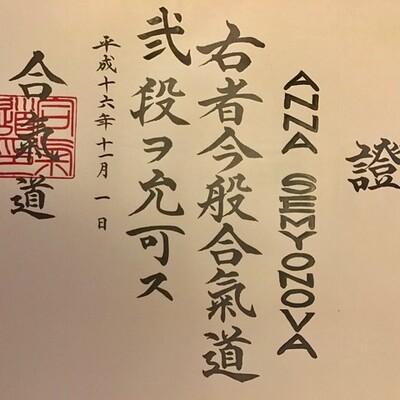 證
ANNA SEMYONOVA
右者今般合氣道
弐段ヲ允可ス
平成十六年十一月一日
合氣道